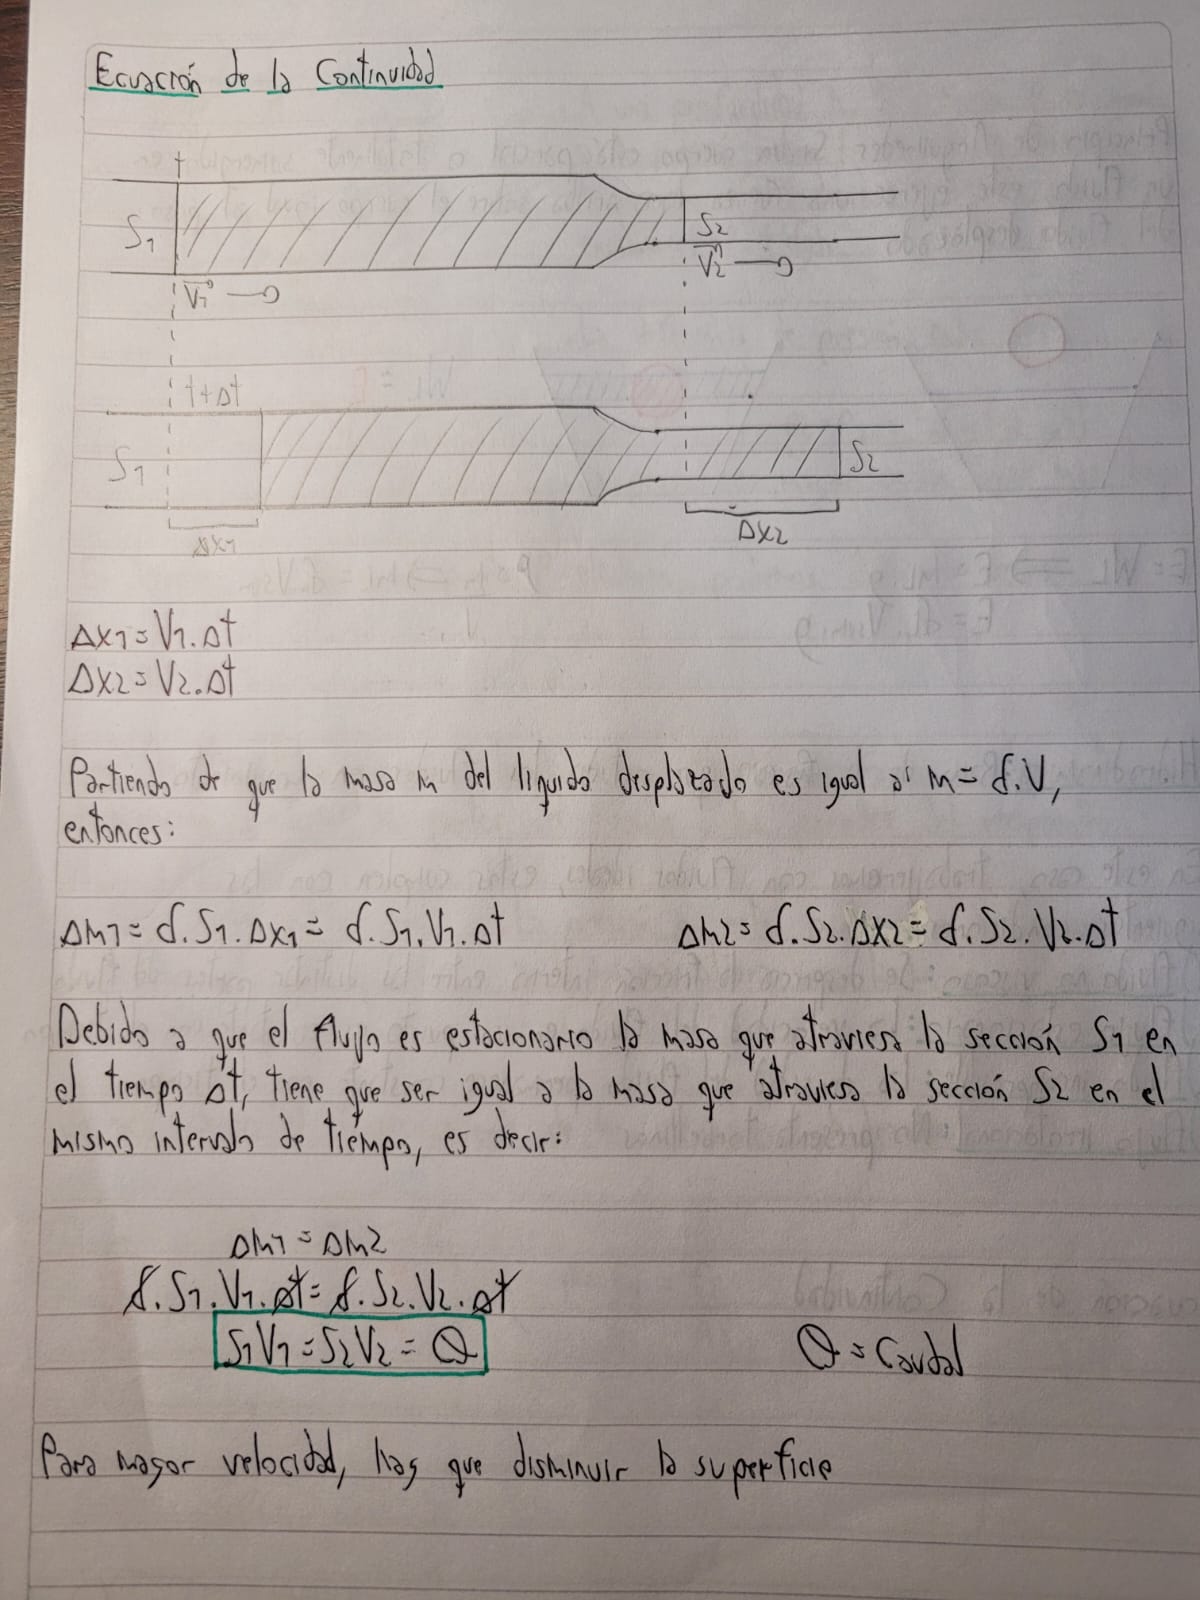 Ecuación de la Continuidad
t
S1
S2
V1
V2
t+Δt
S1
S2
Δx1
Δx2
Δx1 = V1.Δt
Δx2 = V2.Δt
Partiendo de que la masa m del líquido desplazado es igual a: m = δ.V,
entonces:
Δm1 = δ.S1.Δx1 = δ.S1.V1.Δt Δm2 = δ.S2.Δx2 = δ.S2.V2.Δt
Debido a que el flujo es estacionario la masa que atraviesa la sección S1 en
el tiempo Δt, tiene que ser igual a la masa que atraviesa la sección S2 en el
mismo intervalo de tiempo, es decir:
Δm1 = Δm2
δ.S1.V1.Δt = δ.S2.V2.Δt
S1V1 = S2V2 = Q Q = Caudal
Para mayor velocidad, hay que disminuir la superficie